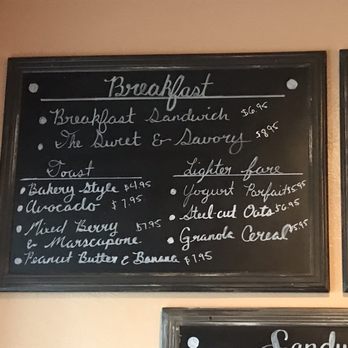 Breakfast
• Breakfast Sandwich $6.95
• The Sweet & Savory $8.95
Toast
• Bakery Style $4.95
• Avocado $7.95
• Mixed Berry $7.95
& Marscapone
• Peanut Butter & Banana $7.95
Lighter fare
• Yogurt Parfait $5.95
• Steel-cut Oats $6.95
• Granola Cereal $5.95